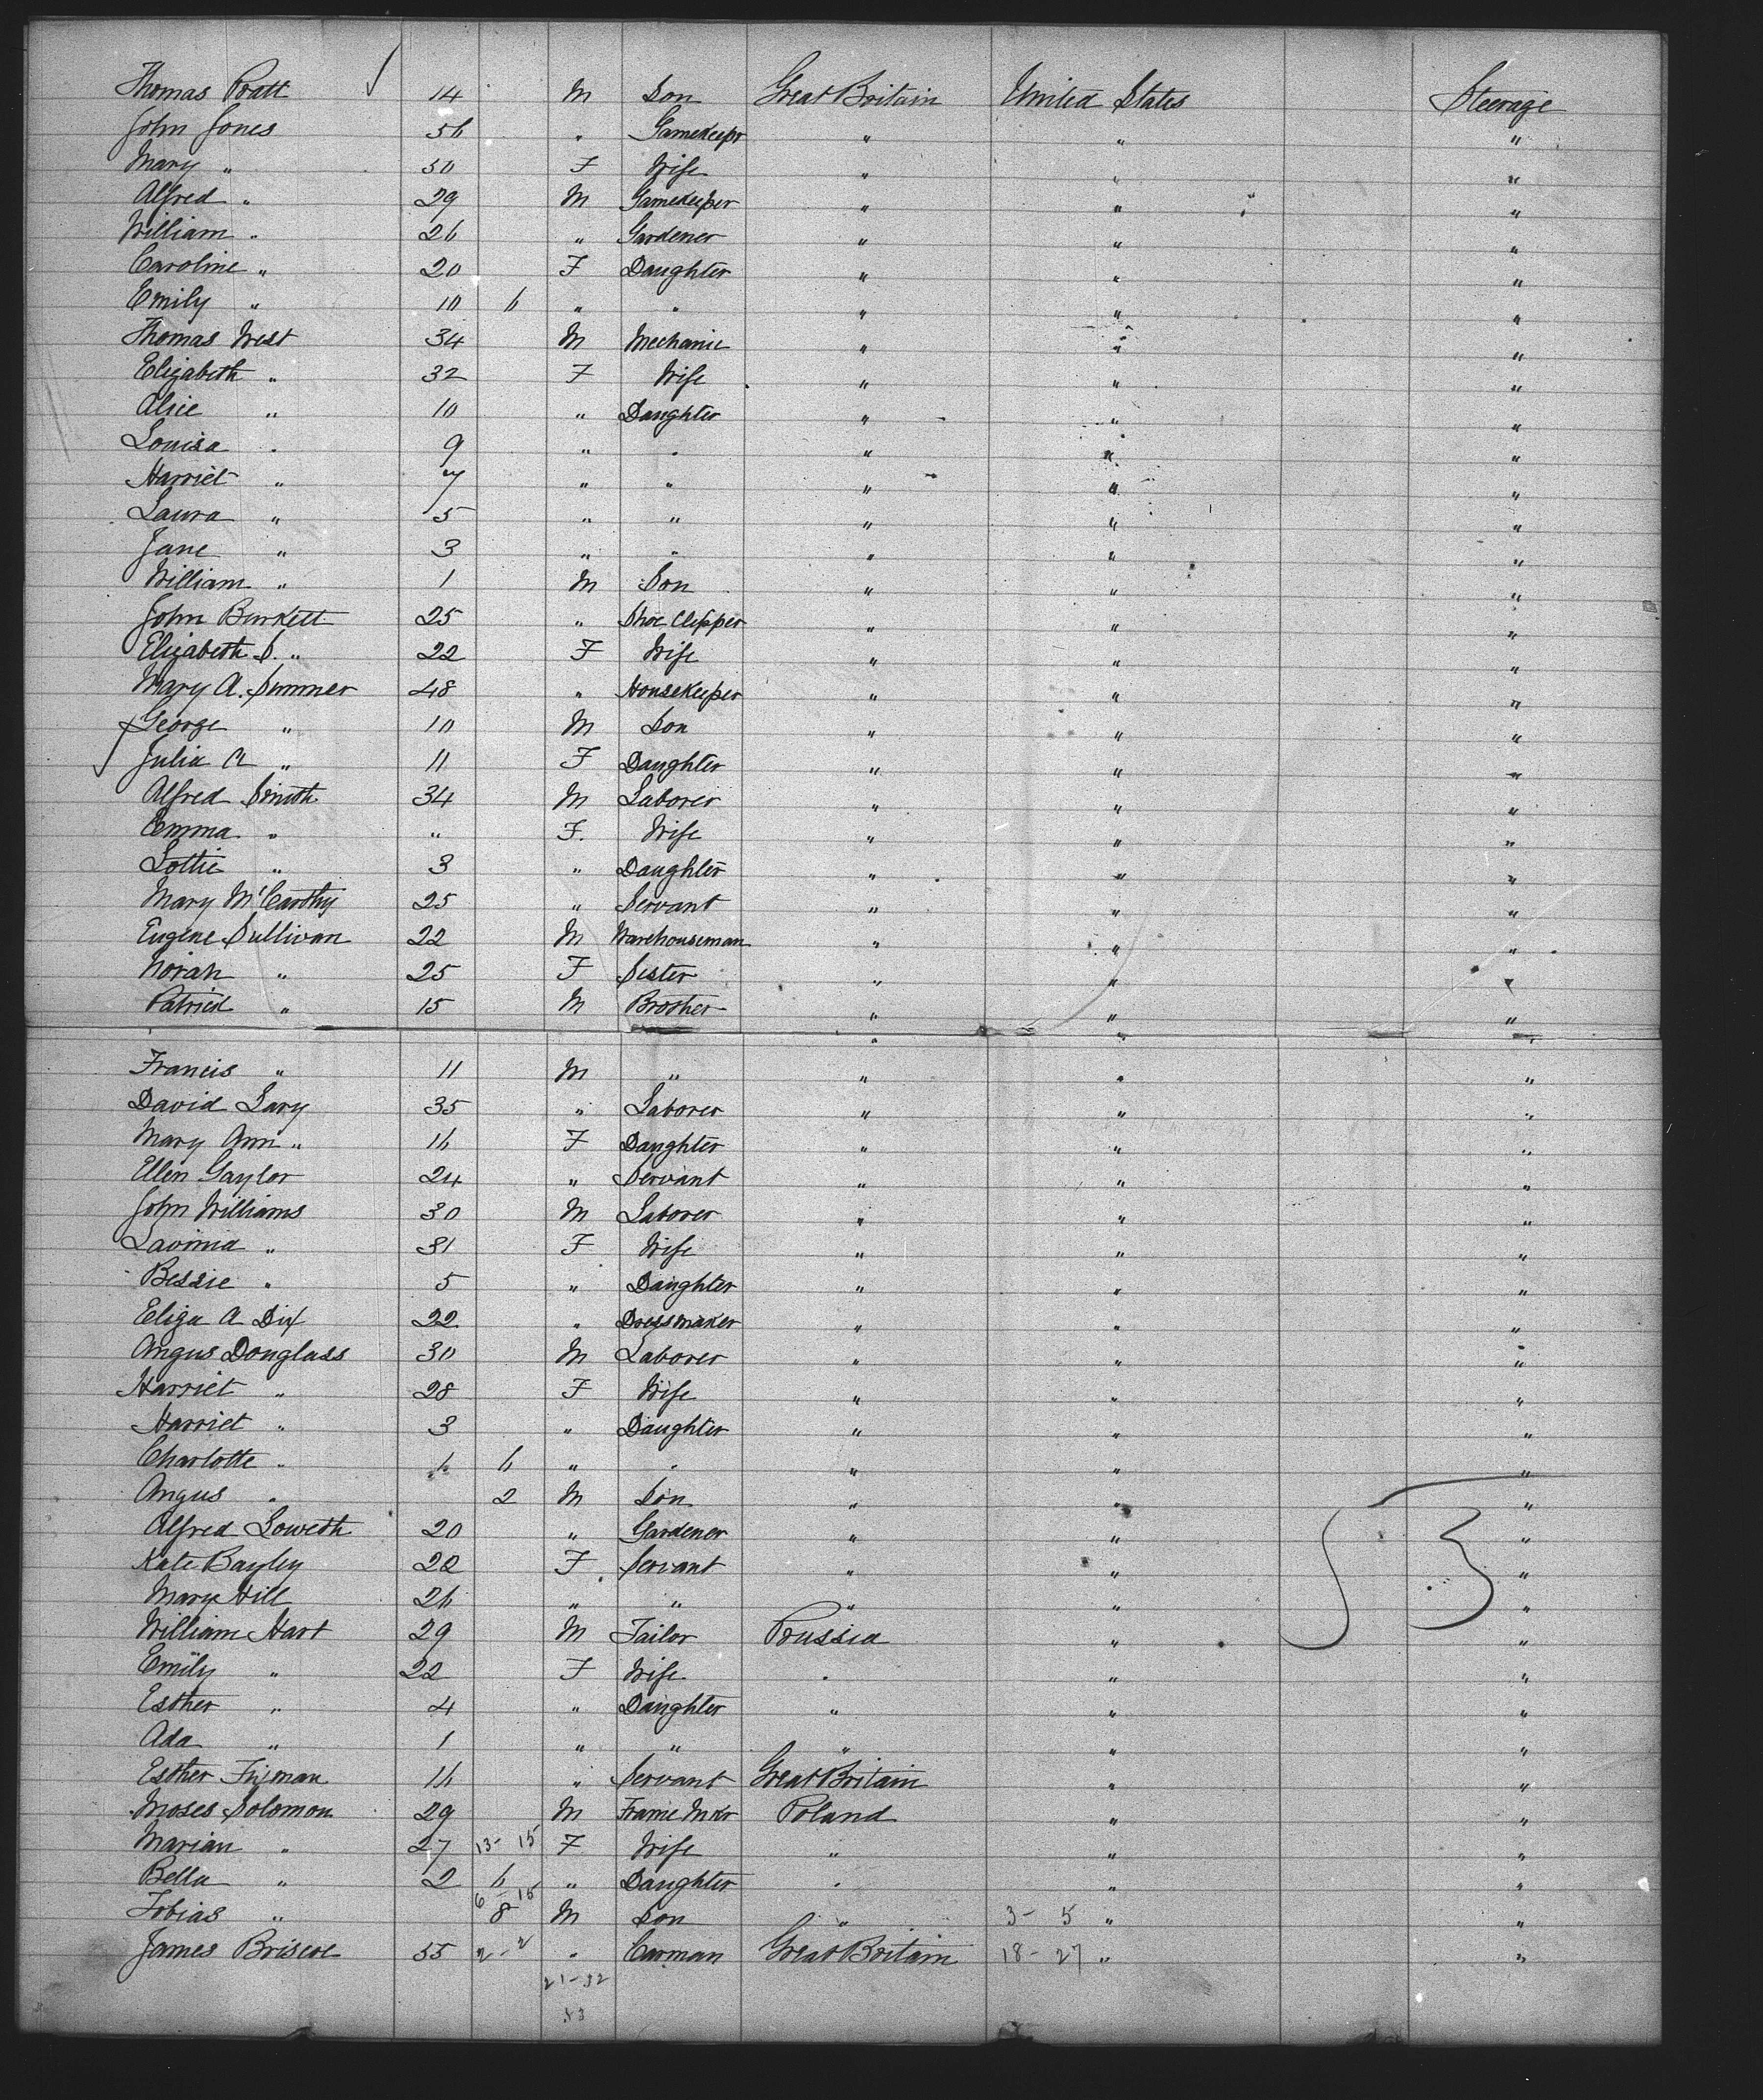 Thomas Pratt 14 M Son Great Britain United States Steerage
John Jones 56 " Gamekeepr " " "
Mary " 50 F Wife " " "
Alfred " 29 M Gamekeeper " " "
William " 26 " Gardener " " "
Caroline " 20 F Daughter " " "
Emily " 10 6 " " " " "
Thomas West 34 M Mechanic " " "
Elizabeth " 32 F Wife " " "
Alice " 10 " Daughter " " "
Louisa " 9 " " " " "
Harriet " 7 " " " " "
Laura " 5 " " " " "
Jane " 3 " " " " "
William " 1 M Son " " "
John Burkett 25 " Shoe Clipper " " "
Elizabeth S. " 22 F Wife " " "
Mary A. Sumner 48 " Housekeeper " " "
George " 10 M Son " " "
Julia A " 11 F Daughter " " "
Alfred Smith 34 M Laborer " " "
Emma " " F. Wife " " "
Lottie " 3 " Daughter " " "
Mary McCarthy 25 " Servant " " "
Eugene Sullivan 22 M Warehouseman " " "
Norah " 25 F Sister " " "
Patrick " 15 M Brother " " "
Francis " 11 M " " " "
David Lary 35 " Laborer " " "
Mary Ann " 16 F Daughter " " "
Ellen Gaylor 24 " Servant " " "
John Williams 30 M Laborer " " "
Lavinia " 31 F Wife " " "
Bessie " 5 " Daughter " " "
Eliza A Dix 22 " Dressmaker " " "
Angus Douglass 30 M Laborer " " "
Harriet " 28 F Wife " " "
Harriet " 3 " Daughter " " "
Charlotte " 1 6 " " " " "
Angus " 2 M Son " " "
Alfred Loweth 20 " Gardener " " "
Kate Bayley 22 F Servant " " "
Mary Hill 26 " " " " "
53
William Hart 29 M Tailor Prussia " "
Emily " 22 F Wife " " "
Esther " 4 " Daughter " " "
Ada " 1 " " " " "
Esther 16 " Servant Great Britain " "
Moses Solomon 29 M Frame Mkr Poland " "
Marian " 27 13-15 F Wife " " "
Bella " 2 6 " Daughter " " "
6-15
Tobias " 8 M Son " 3-5 " "
James Briscoe 55 2-2 " Carman Great Britain 18-27 " "
21-32
53